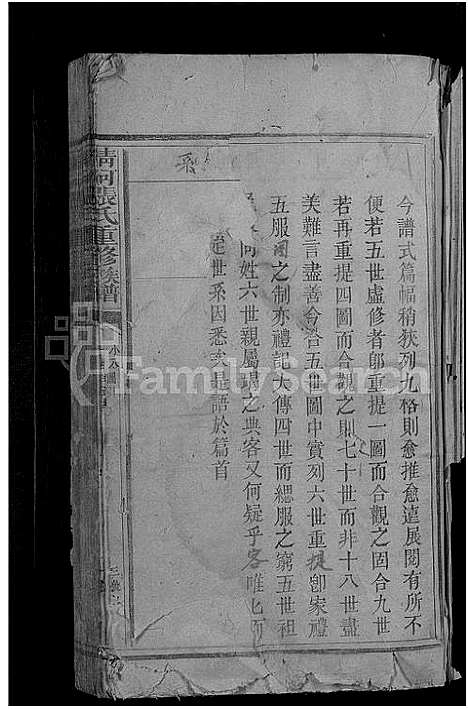 今譜式篇幅稍狹列九格則愈推愈遠展閱有所不
便若五世虛修者卽重提一圖而合觀之固合九世
若再重提四圖而合觀之則七十世而非十八世盡
美難言盡善今合五世圖中實列六世重提卽家禮
五服圖之制亦禮記大傳四世而緦服之窮五世祖
同姓六世親屬竭之典客又何疑乎客唯匕而
世系因悉是語於篇首
系
清河張氏重修族譜
FamilySearch